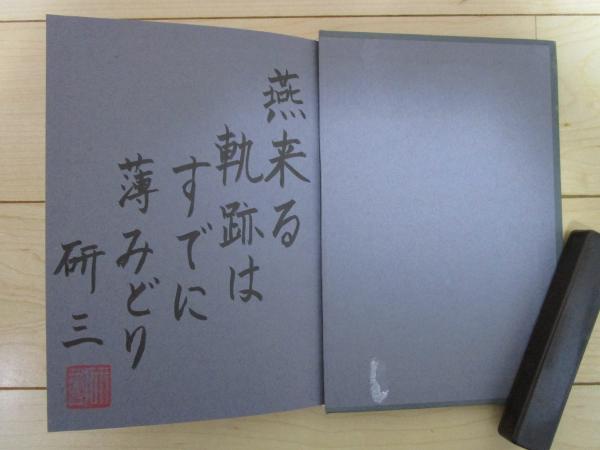 燕来る
軌跡は
すでに
薄みどり
研三